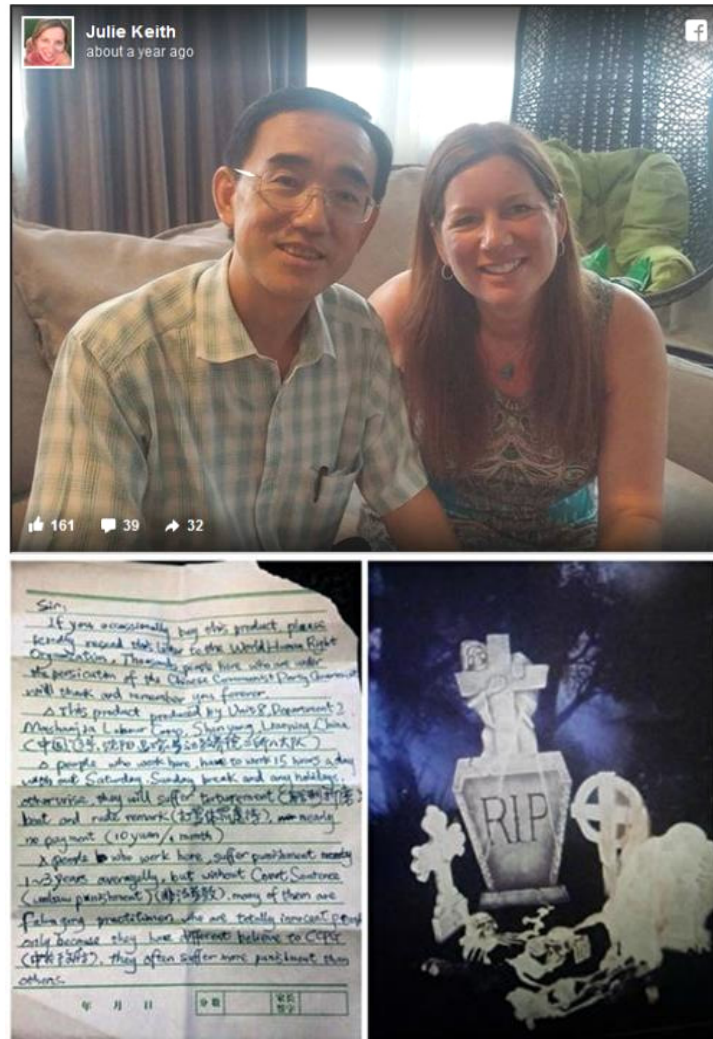 Julie Keith
about a year ago
161 39 32
Sir:
If you occassionally buy this product, please
kindly resend this letter to the World Human Right
Organization. Thousands people here who are under
the persicution of the Chinese Communist Party Government
will thank and remember you forever.
This product produced by Unit 8, Department 2,
Mashanjia Labour Camp, Shenyang, Liaoning, China
people who work here, have to work 15 hours a day
with out Saturday, Sunday break and any holidays,
otherwise, they will suffer torturement
beat and rude remark nearly
no payment (10 yuan/1 month)
people who work here, suffer punishment nearly
1~3 years averagelly, but without Court Sentence
(unlaw punishment) (非法劳教), many of them are
Falungong practitioner, who are totally innocent people
only because they have different believe to CCPG
they often suffer more punishment than
others.
年 月 日 分数 家长签字
RIP